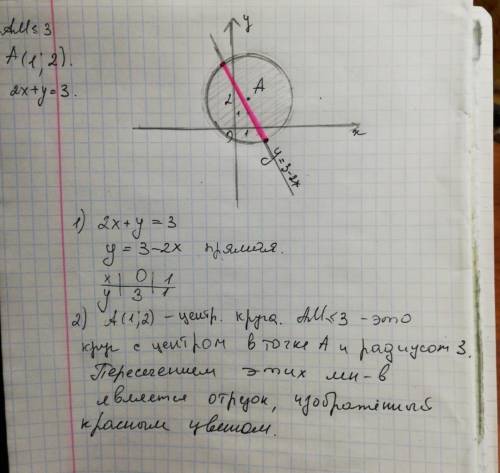 AM ≤ 3
A(1; 2).
2x+y=3.
y
A
2
1
0
1
x
y=3-2x
1) 2x+y=3
y=3-2x прямая.
x | 0 | 1
y | 3 | 1
2) A(1;2) - центр. круга. AM≤3 - это
круг с центром в точке A и радиусом 3.
Пересечением этих мн-в
является отрезок, изображённый
красным цветом.